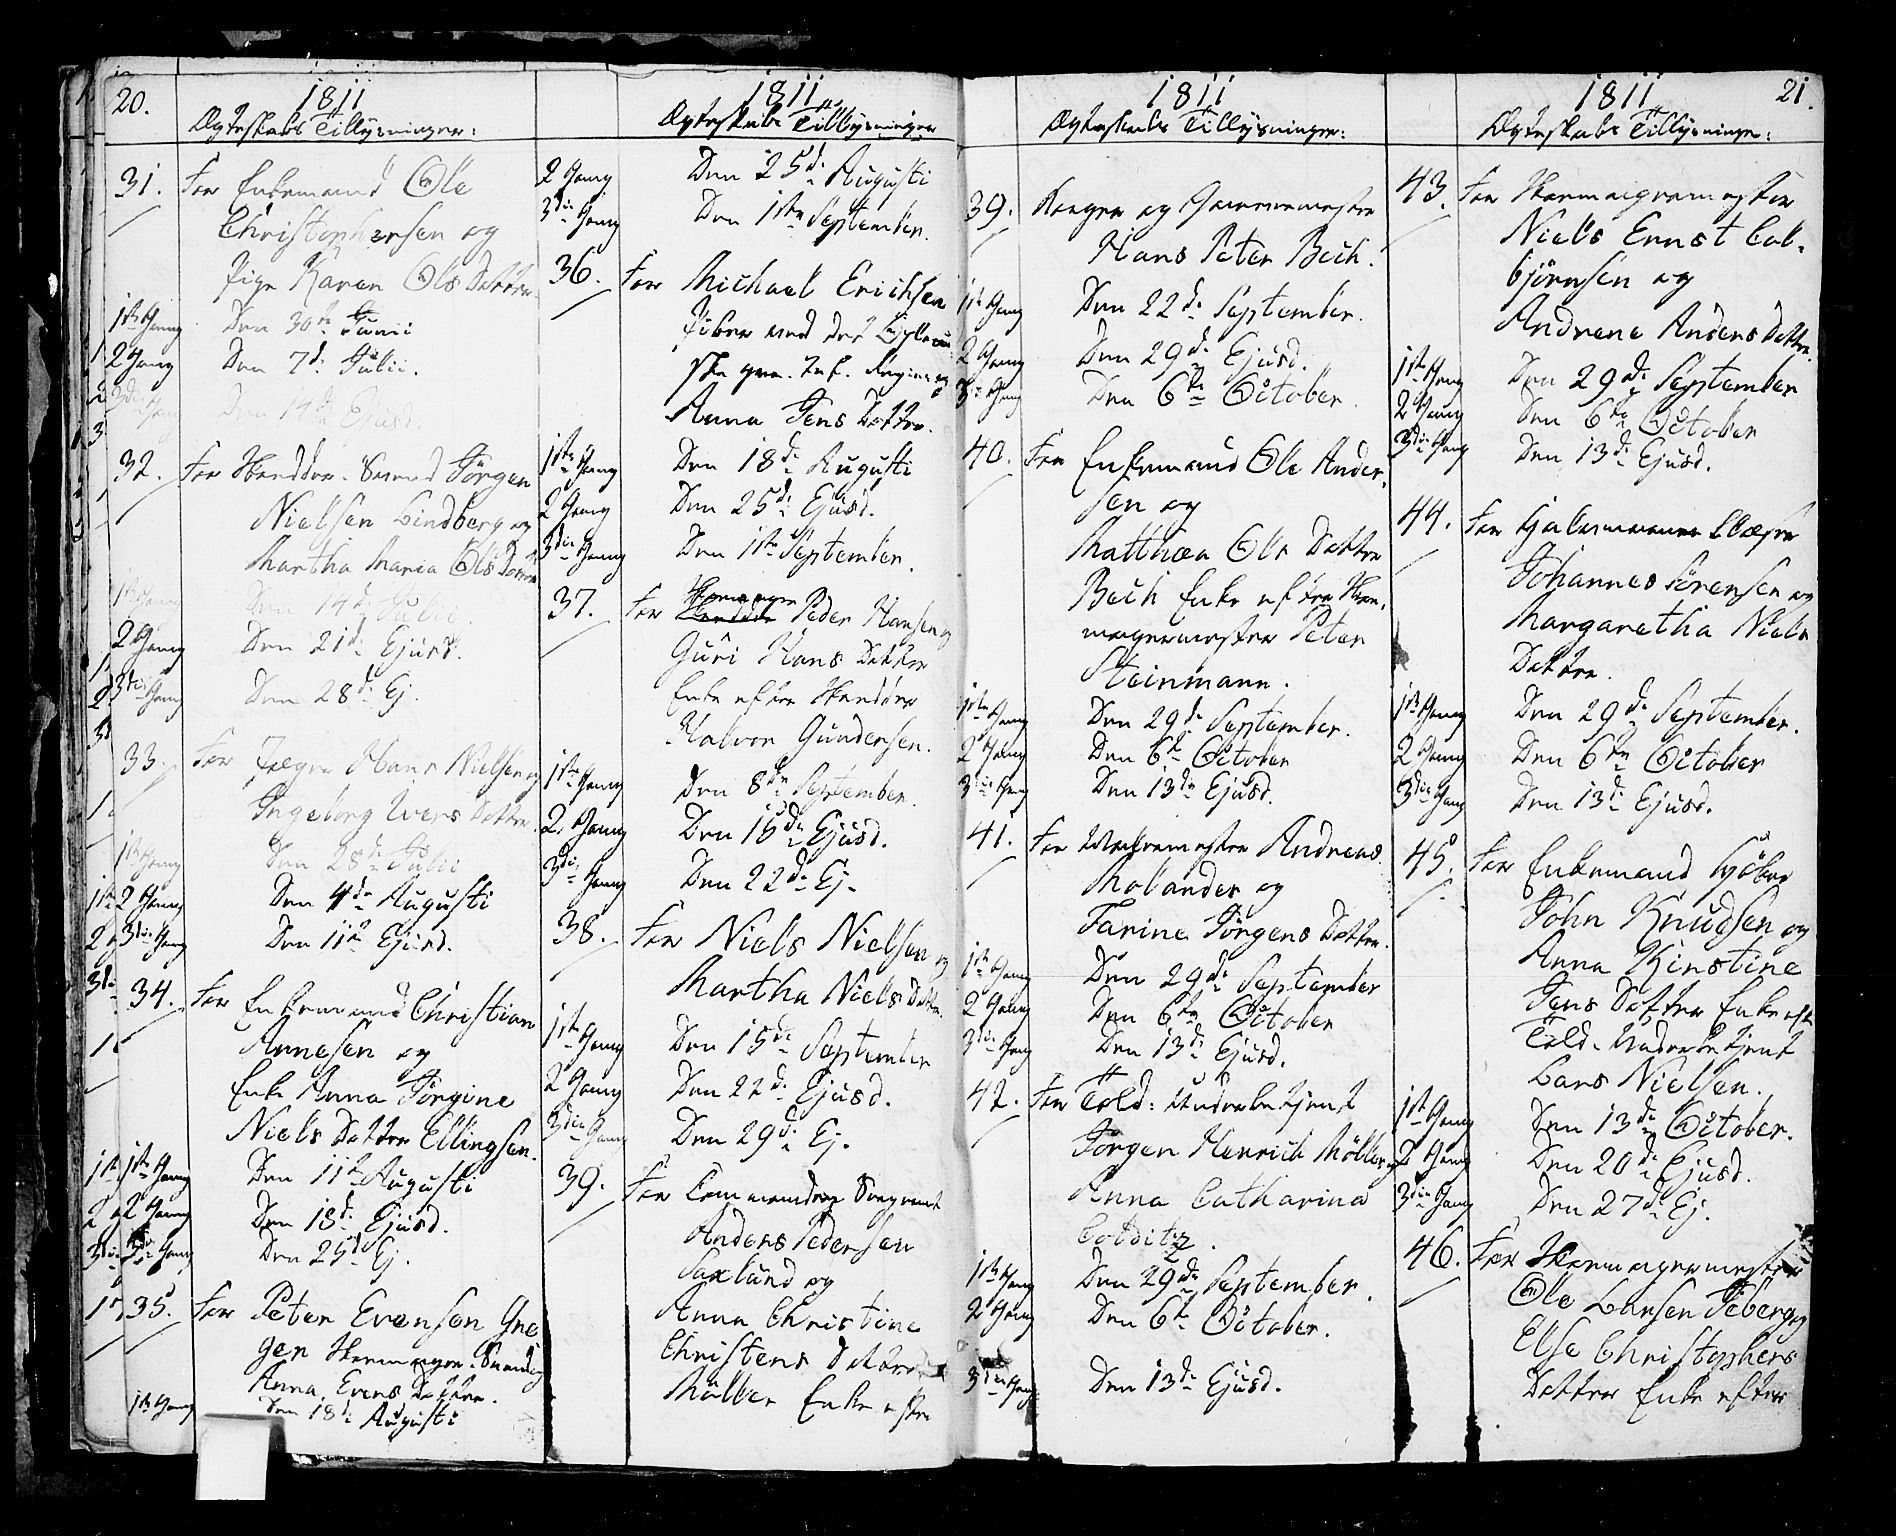 20.
1811
Ægteskabs Tillysninger:
31. For Enkemand Ole
Christophersen og
Pige Karen Ols Datter.
1ste Gang Den 30te Junii
2 Gang Den 7de Julii.
3die Gang Den 14de Ejusd.
32. For Jørgen
Nielsen Lindberg og
Martha Maria Ols Datter
1ste Gang Den 14de Julii.
2 Gang Den 21de Ejusd.
3die Gang Den 28de Ej.
33. For Hans Nielsen og
Ingeborg Ivers Datter.
1ste Gang Den 28de Julii
2 Gang Den 4de Augusti
3die Gang Den 11te Ejusd.
34. For Enkemand Christian
Annesen og
Enke Anna Jørgine
Niels Datter Ellingsen.
1ste Gang Den 11te Augusti
2 Gang Den 18de Ejusd.
3die Gang Den 25de Ej.
35. For Peter Evensen Gre
gen Skomager Svend og
Anna Evens Datter.
1ste Gang Den 18de Augusti
1811
Ægteskabs Tillysninger
2 Gang Den 25de Augusti
3die Gang Den 1ste September.
36. For Michael Erichsen
med det
Anna Jens Datter.
1ste Gang Den 18de Augusti
2 Gang Den 25de Ejusd.
3die Gang Den 1ste September.
37. For Skomager Peder Hansen og
Guri Hans Datter
Enke efter
Halvor Gundersen.
1ste Gang Den 8de September.
2. Gang Den 15de Ejusd.
3die Gang Den 22de Ej.
38. For Niels Nielsen og
Martha Niels Datter.
1ste Gang Den 15de September
2 Gang Den 22de Ejusd.
3die Gang Den 29de Ej.
39. For Commandeer Sergeant
Anders Pedersen
Saxlund og
Anna Christine
Christens Datter
Møller Enke efter
1811
Ægteskabs Tillysninger:
39. og
Hans Peter Bech.
1ste Gang Den 22de September.
2 Gang Den 29de Ejusd.
3die Gang Den 6te October.
40. For Enkemand Ole Ander-
sen og
Matthea Ols Datter
Bech Enke efter Skoe-
magermester Peter
Steinmann.
1ste Gang Den 29de September.
2 Gang Den 6te October
3die Gang Den 13de Ejusd.
41. For Andreas
Molander og
Tarine Jørgens Datter.
1ste Gang Den 29de September
2 Gang Den 6te October
3die Gang Den 13de Ejusd.
42. For Told-Underbetjent
Jørgen Henrich Møller og
Anna Catharina
Colditz.
1ste Gang Den 29de September.
2 Gang Den 6te October.
3die Gang Den 13de Ejusd.
1811
21.
Ægteskabs Tillysninger:
43. For Skomagermester
Niels Ernst Col-
bjørnsen og
Andrene Anders Datter.
1ste Gang Den 29de September
2 Gang Den 6te October
3die Gang Den 13de Ejusd.
44. For
Johannes Sørensen og
Margaretha Niels
Datter.
1ste Gang Den 29de September.
2 Gang Den 6te October
3die Gang Den 13de Ejusd.
45. For Enkemand
John Knudsen og
Anna Kirstine
Jens Datter Enke efter
Told-Underbetjent
Lars Nielsen.
1ste Gang Den 13de October.
2 Gang Den 20de Ejusd.
3die Gang Den 27de Ej.
46. For Skomagermester
Ole Larsen Feberg og
Else Christophers
Datter Enke efter